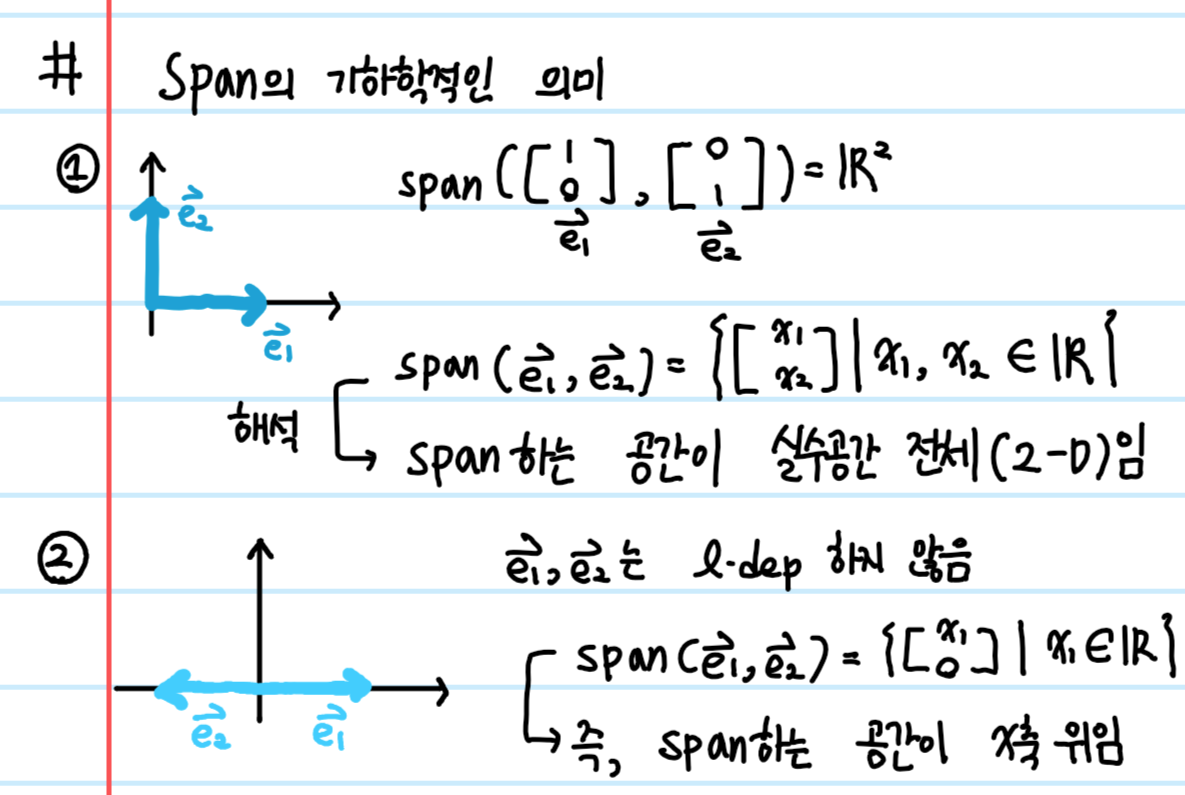 # Span의 기하학적인 의미
① span([1 0], [0 1]) = ℝ²
e⃗₁ e⃗₂
e⃗₂
e⃗₁
span(e⃗₁, e⃗₂) = {[x₁ x₂] | x₁, x₂ ∈ ℝ}
해석
span하는 공간이 실수공간 전체(2-D)임
② e⃗₁, e⃗₂는 l-dep 하지 않음
span(e⃗₁, e⃗₂) = {[x₁ 0] | x₁ ∈ ℝ}
e⃗₂ e⃗₁
즉, span하는 공간이 x축 위임